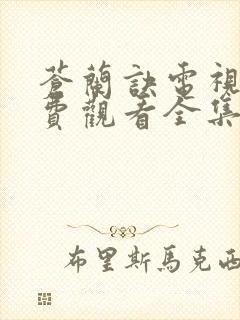 蒼蘭訣電視
費觀看全集
布里斯馬克西